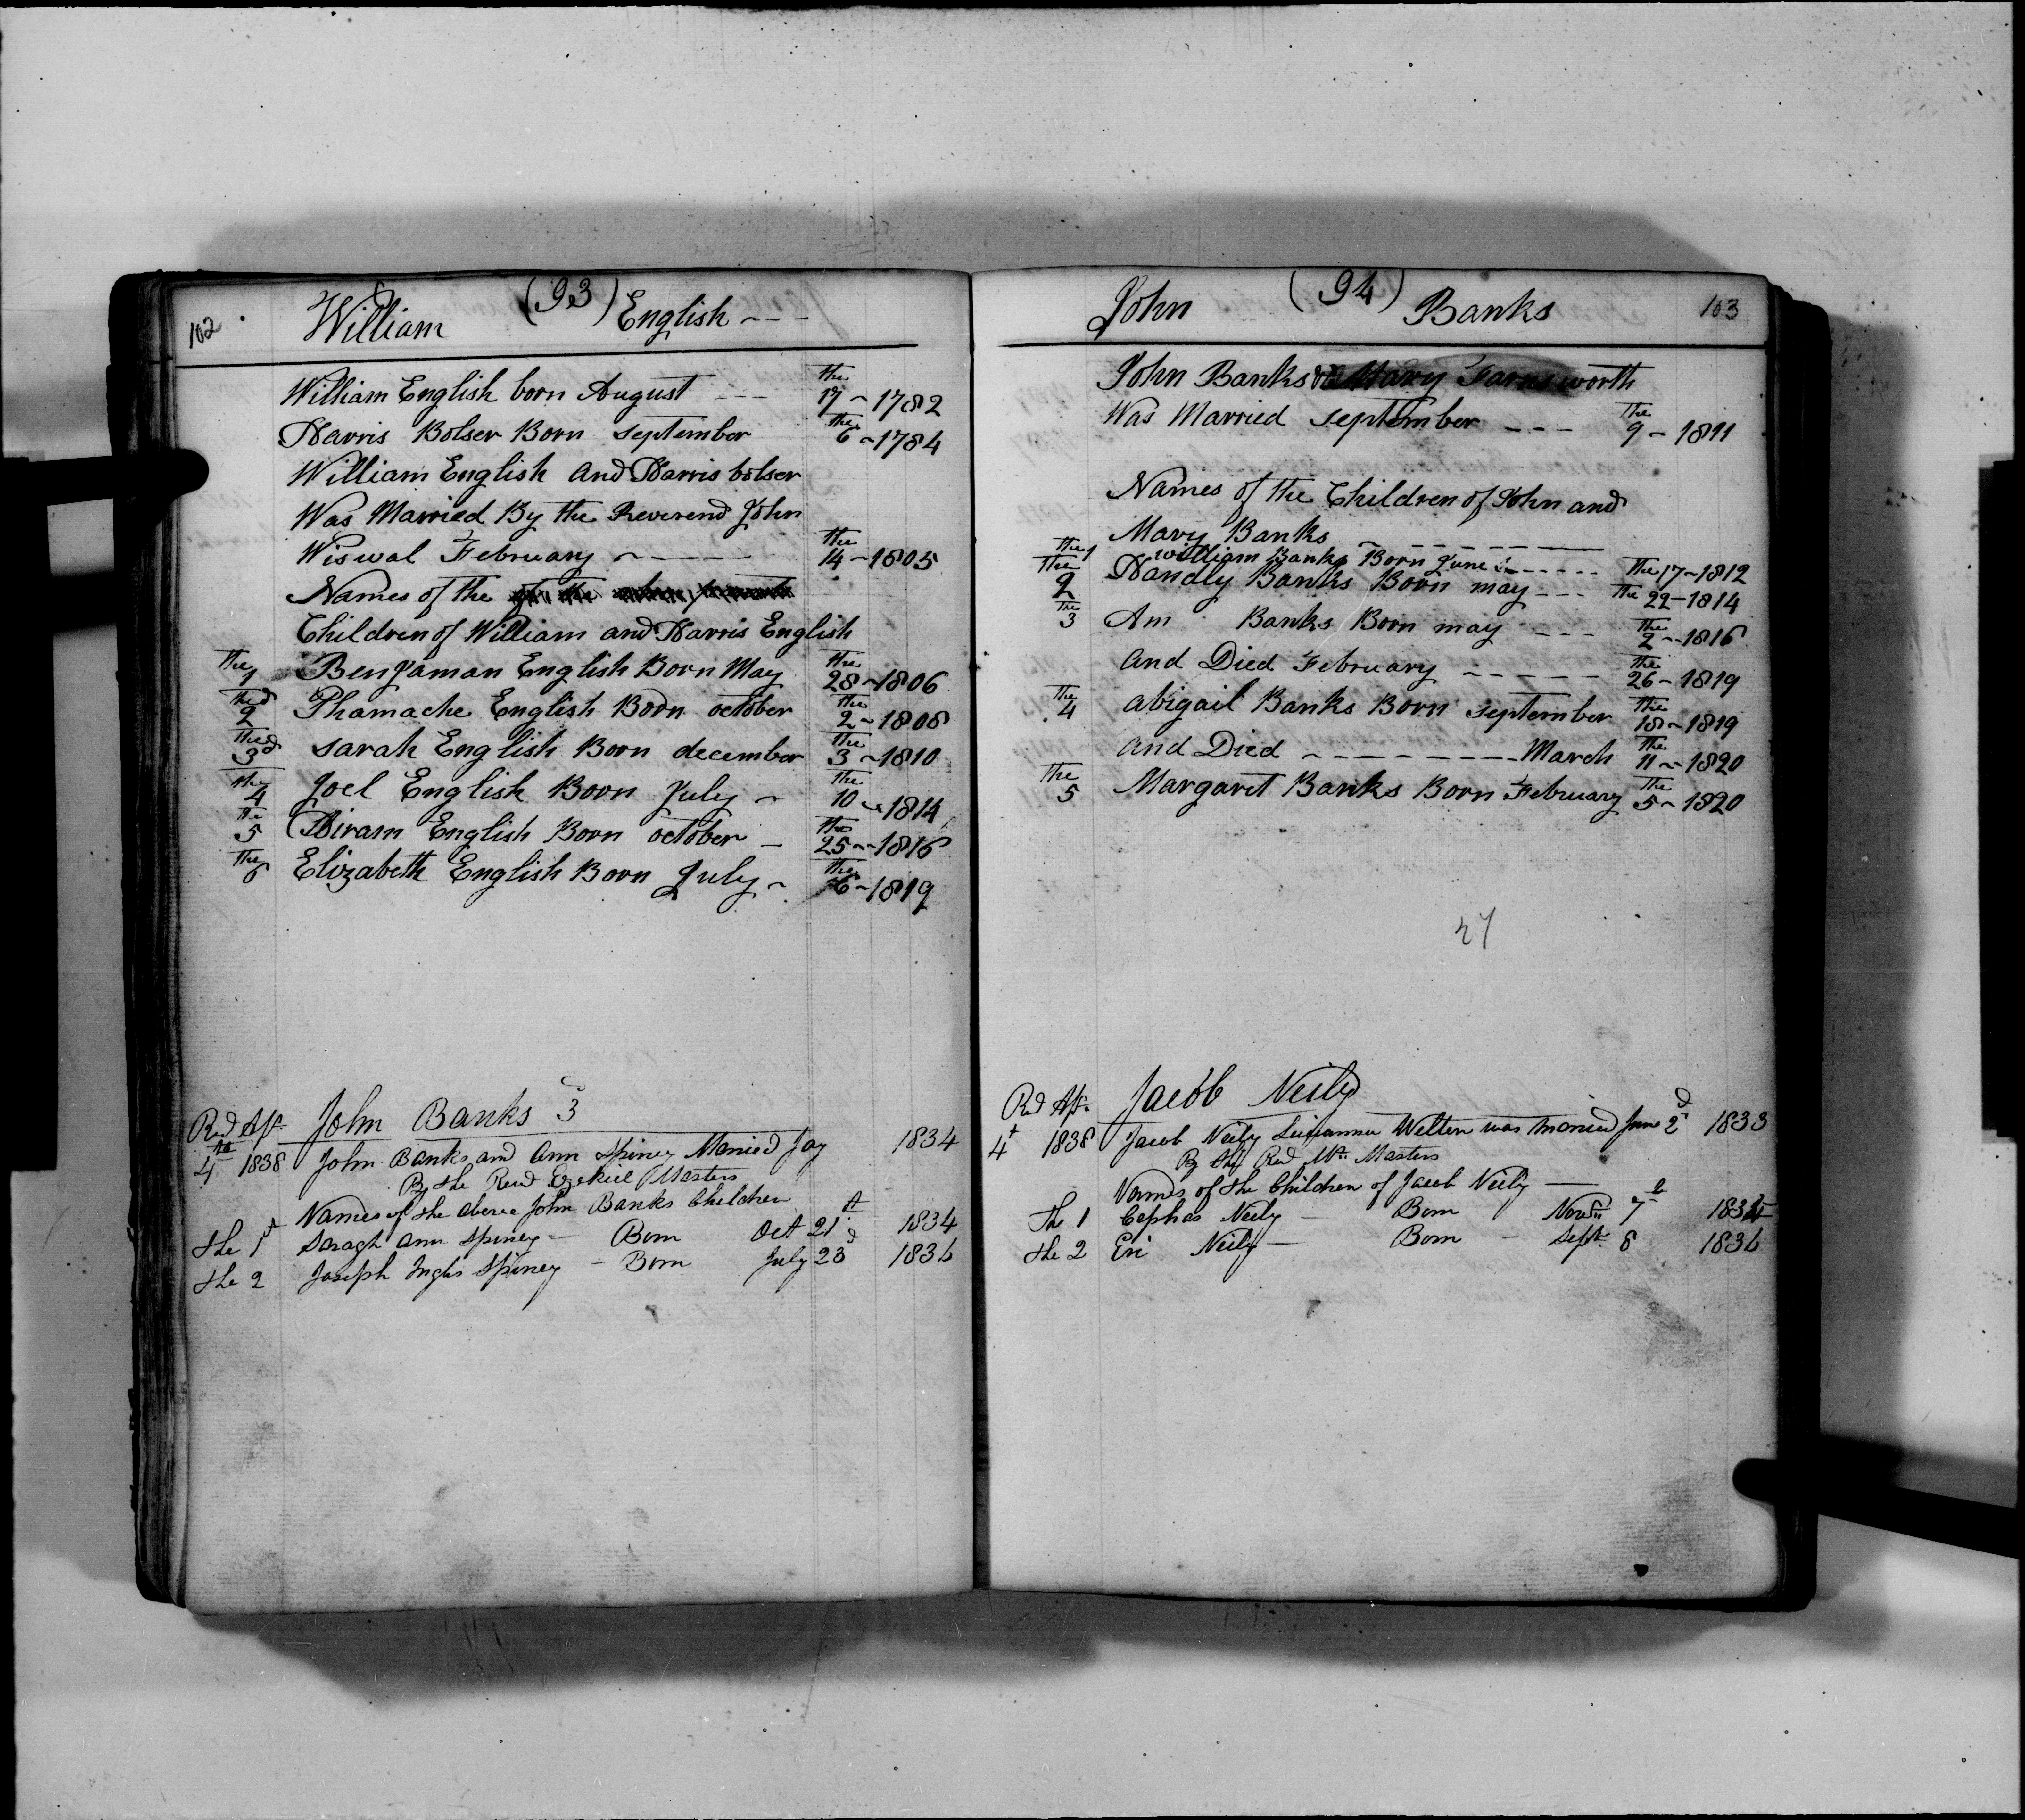 102 William (93) English
William English born August the 17 1782
Harris Bolser Born September the 6 1784
William English and Harris bolser
Was Married By the Reverend John
Wiswal February the 14 1805
Names of the
Children of William and Harris English
the 1 Benjaman English Born May the 28 1806
the 2d Phamache English Born october the 2 1808
the 3d Sarah English Born december the 3 1810
the 4 Joel English Born July the 10 1814
the 5 Hiram English Born october the 25 1816
the 6 Elizabeth English Born July the 6 1819
Rd Ap. John Banks 3
4th 1838 John Banks and Ann Spiney Married 1834
By the Revd Ezekiel Masters
Names of the above John Banks Children
the 1st Saragh Ann Spiney Born Oct 21st 1834
the 2 Joseph Inglis Spiney Born July 23d 1836
John (94) Banks 103
John Banks Mary Farnsworth
Was Married September the 9 1811
Names of the Children of John and
Mary Banks
the 1 william Banks Born June the 17 1812
the 2 Handly Banks Born may the 22 1814
the 3 Am Banks Born may the 2 1816
and Died February the 26 1819
the 4 abigail Banks Born September the 18 1819
and Died March the 11 1820
the 5 Margaret Banks Born February the 5 1820
27
Rd Ap. Jacob Neily
4t 1838 Jacob Neily Welten was Married June 2d 1833
By the Revd Mr. Masters
Names of the Children of Jacob Neily
The 1 Cephas Neily Born Novr 7th 1834
the 2 Eri Neily Born Sept 8 1836